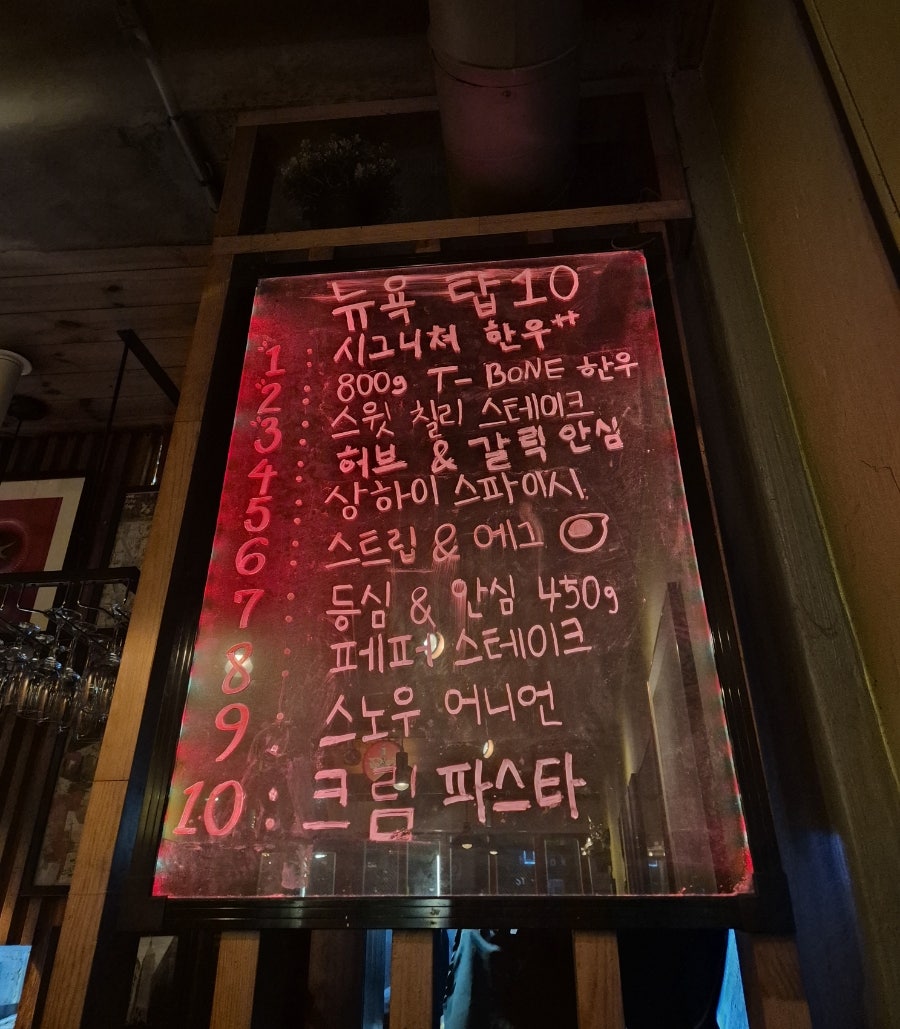 뉴욕 탑10
1 : 시그니쳐 한우++
2 : 800g T-BONE 한우
3 : 스윗 칠리 스테이크
4 : 허브 & 갈릭 안심
5 : 상하이 스파이시.
6 : 스트립 & 에그
7 : 등심 & 안심 450g
8 : 페퍼 스테이크
9 : 스노우 어니언
10 : 크림 파스타